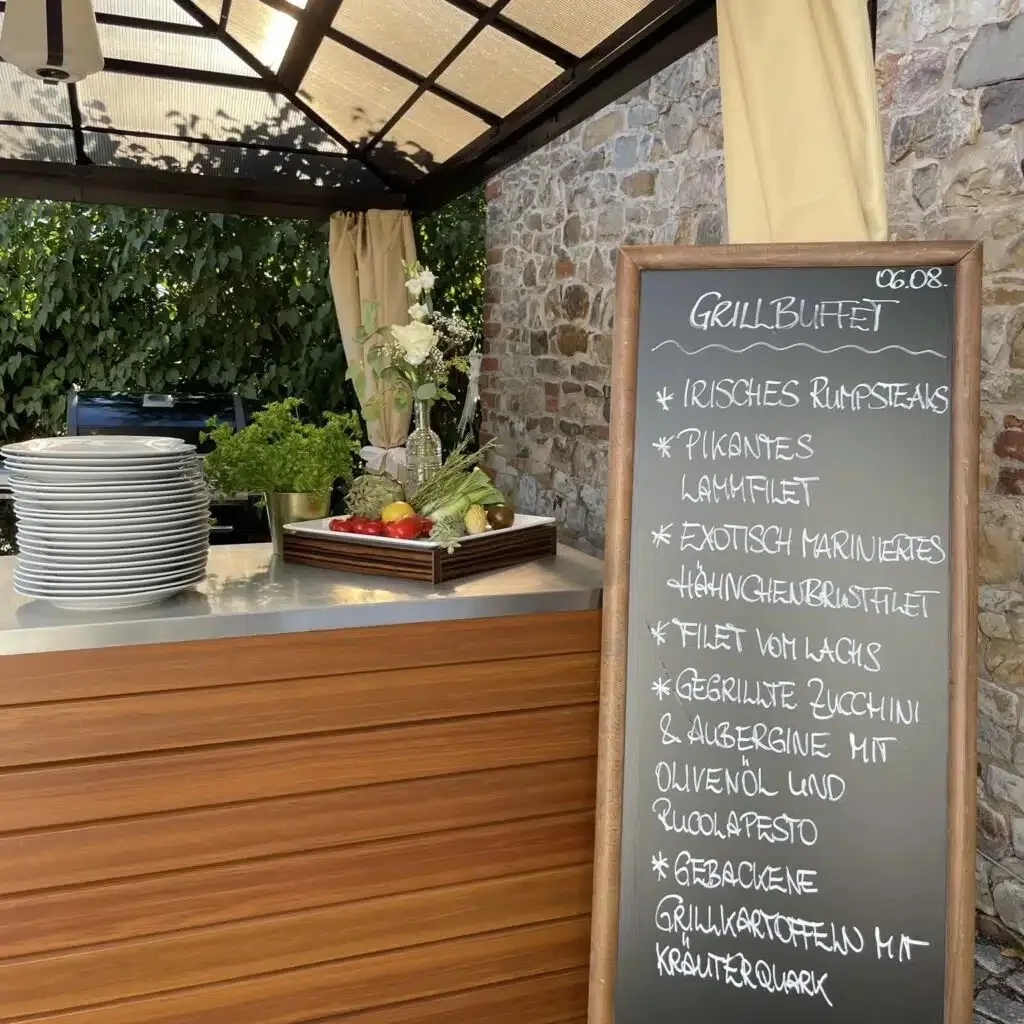 06.08.
GRILLBUFFET
* IRISCHES RUMPSTEAKS
* PIKANTES
LAMMFILET
* EXOTISCH MARINIERTES
HÄHNCHENBRUSTFILET
* FILET VOM LACHS
* GEGRILLTE ZUCCHINI
& AUBERGINE MIT
OLIVENÖL UND
RUCOLAPESTO
* GEBACKENE
GRILLKARTOFFELN MIT
KRÄUTERQUARK